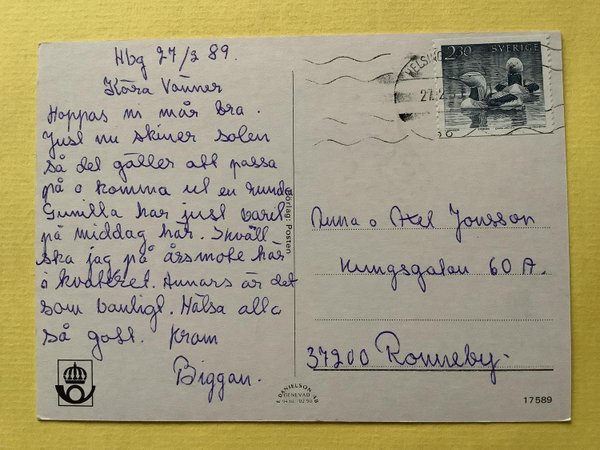 Hbg 27/2 89.
Kära Vänner
Hoppas ni mår bra.
Just nu skiner solen
så det gäller att passa
på o komma ut en runda
Gunilla har just varit
på middag här. Ikväll
ska jag på årsmöte här
i kvarteret. Annars är det
som vanligt. Hälsa alla
så gott. Kram
Biggan.
Förlag: Posten
2.30 SVERIGE
HELSING
27.2
Anna o Axel Jonsson
Kungsgatan 60 A.
37200 Ronneby.
DANIELSON
GENEVAD
17589